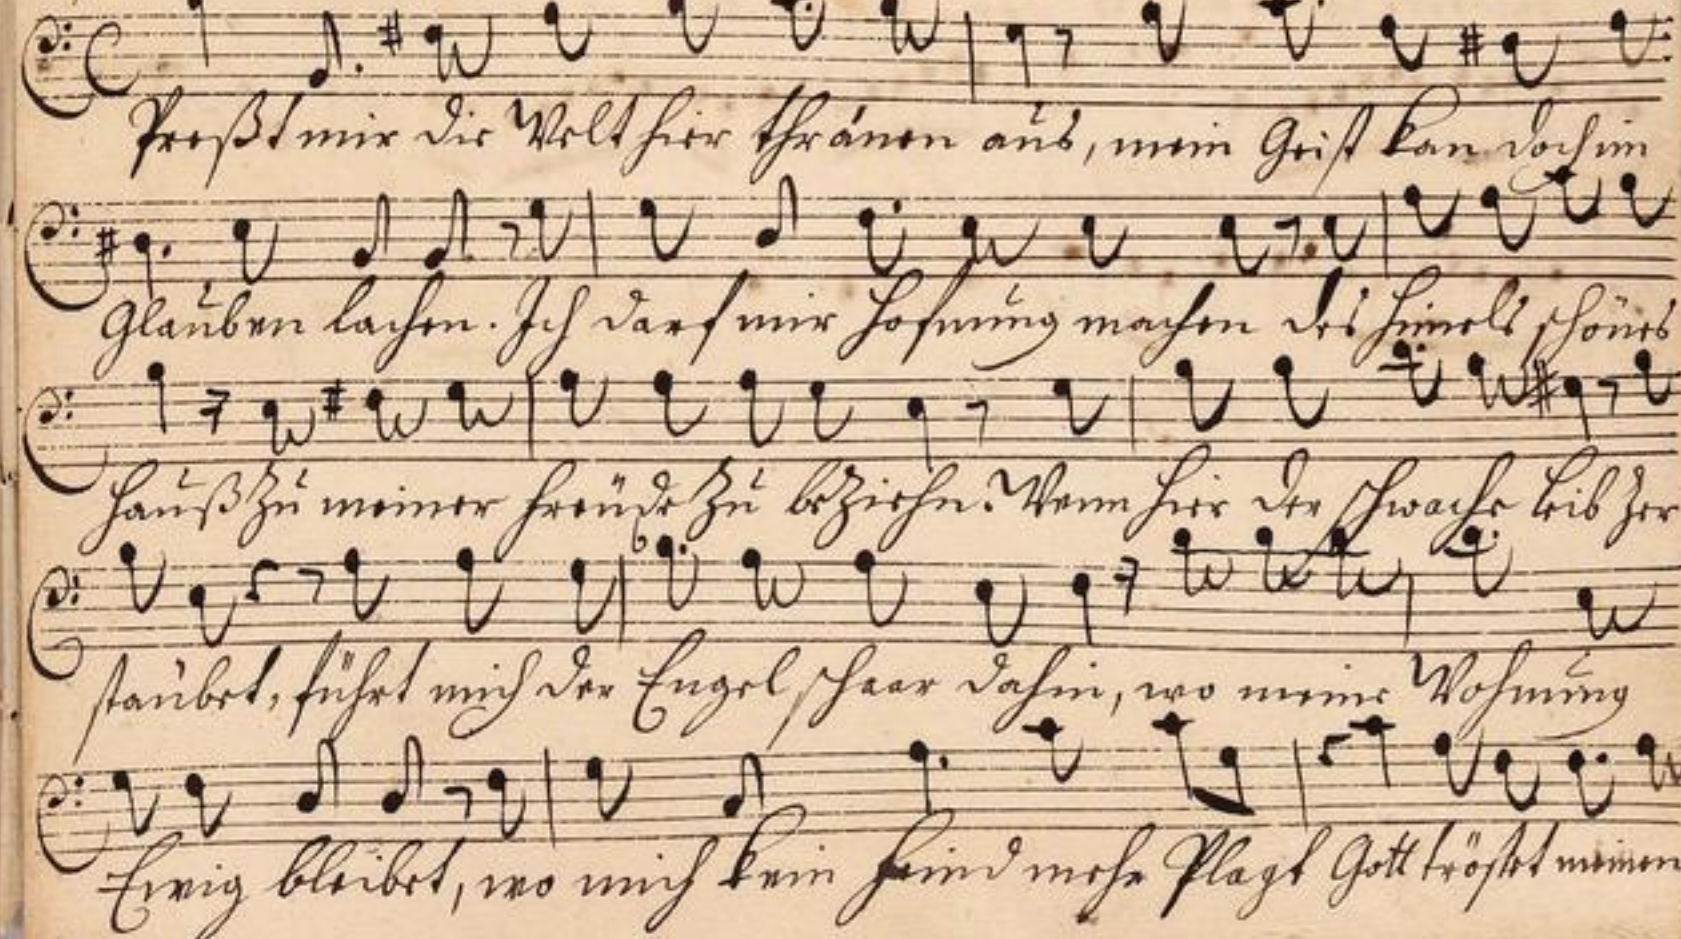 Preßt mir die Welt hier thränen aus, mein Geist kan doch im
Glauben lachen. Ich darf mir Hofnung machen des Himels schönes
Hauß zu meiner Freüde zu beziehn. Wenn hier der schwache Leib zer
staubet, führt mich der Engel schaar dahin, wo meine Wohnung
Ewig bleibet, wo mich kein Feind mehr Plagt Gott tröstet meinen